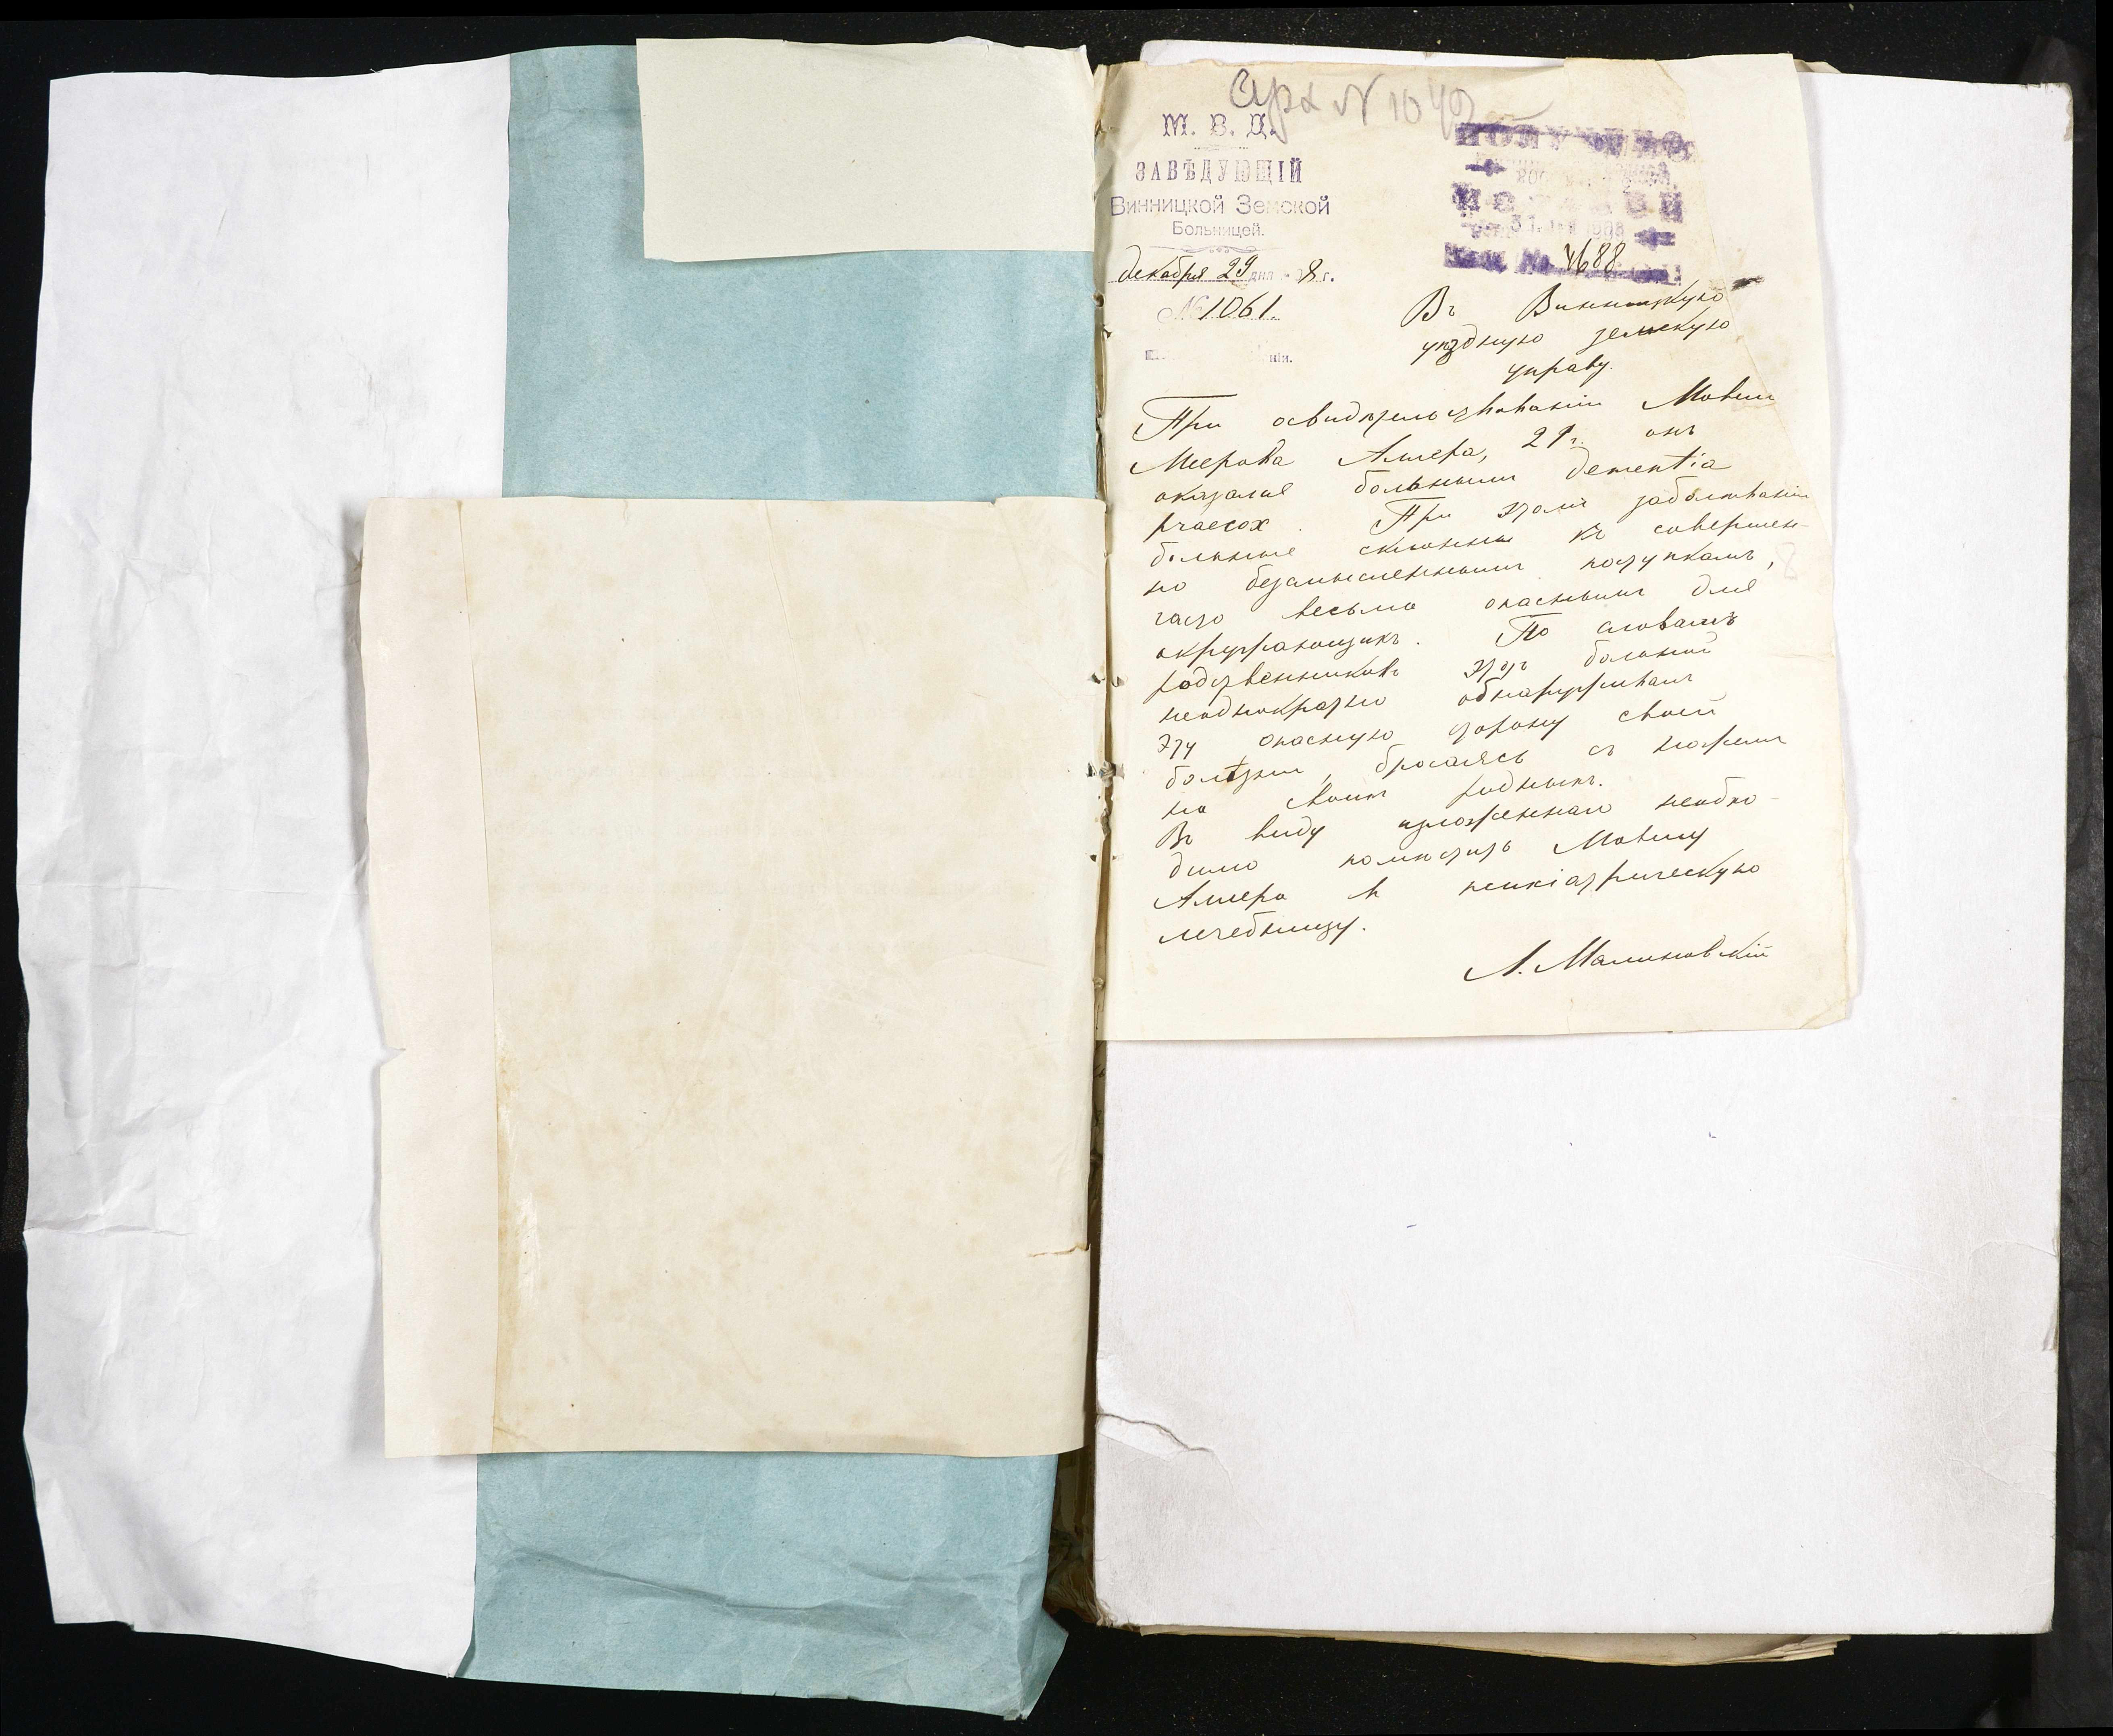 Арх № 1049
М. В. Д.
ЗАВѢДУЮЩІЙ
Винницкой Земской
Больницей.
декабря 29 дня 1908 г.
№ 1061.
ПОЛУЧЕНО
31 1908
4688
Въ Винницкую
уѣздную земскую
управу.
При освидѣтельствованіи Мовши
Меерова Ашера, 29 г. онъ
оказался больнымъ dementia
praecox. При этомъ заболѣваніи
больные склонны къ совершен-
но безсмысленнымъ поступкамъ,
часто весьма опаснымъ для
окружающихъ. По словамъ
родственниковъ этотъ больной
неоднократно обнаруживалъ
эту опасную сторону своей
болѣзни, бросаясь съ ножемъ
на своихъ родныхъ.
Въ виду изложеннаго необхо-
димо помѣстить Мовшу
Ашера въ психіатрическую
лечебницу.
Л. Малиновскій